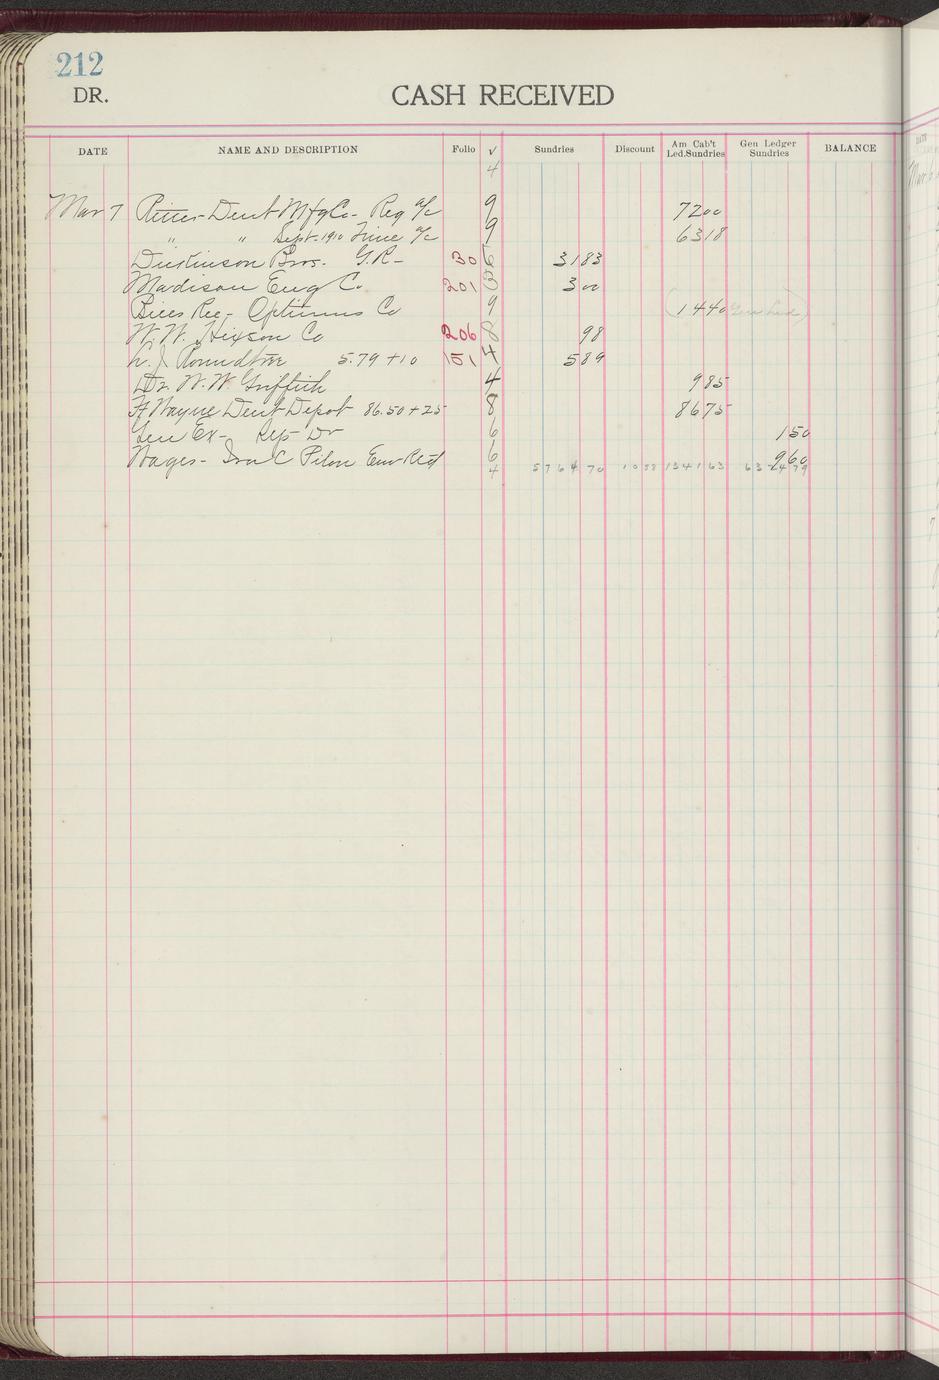 212
DR.
CASH RECEIVED
DATE NAME AND DESCRIPTION Folio √ Sundries Discount Am Cab't Led.Sundries Gen Ledger Sundries BALANCE
4
Mar 7 Ritter Dent Mfg Co - Reg a/c 9 7200
" " Sept. 1910 Time a/c 9 6318
Dickinson Bros. G.R - 30 6 3183
Madison Eng Co 201 3 300
Bills Rec - Optimus Co 9 (1440 Gen Led)
W.W. Hixson Co 206 8 98
W. J. Roundtree 5.79 + 10 151 4 589
Dr. W. W. Griffith 4 985
Ft Wayne Dent Depot 86.50 + 25 8 8675
Gen Ex - Dr 6 150
Wages - Ira C Pilon 6 960
4 5764 70 1341 63